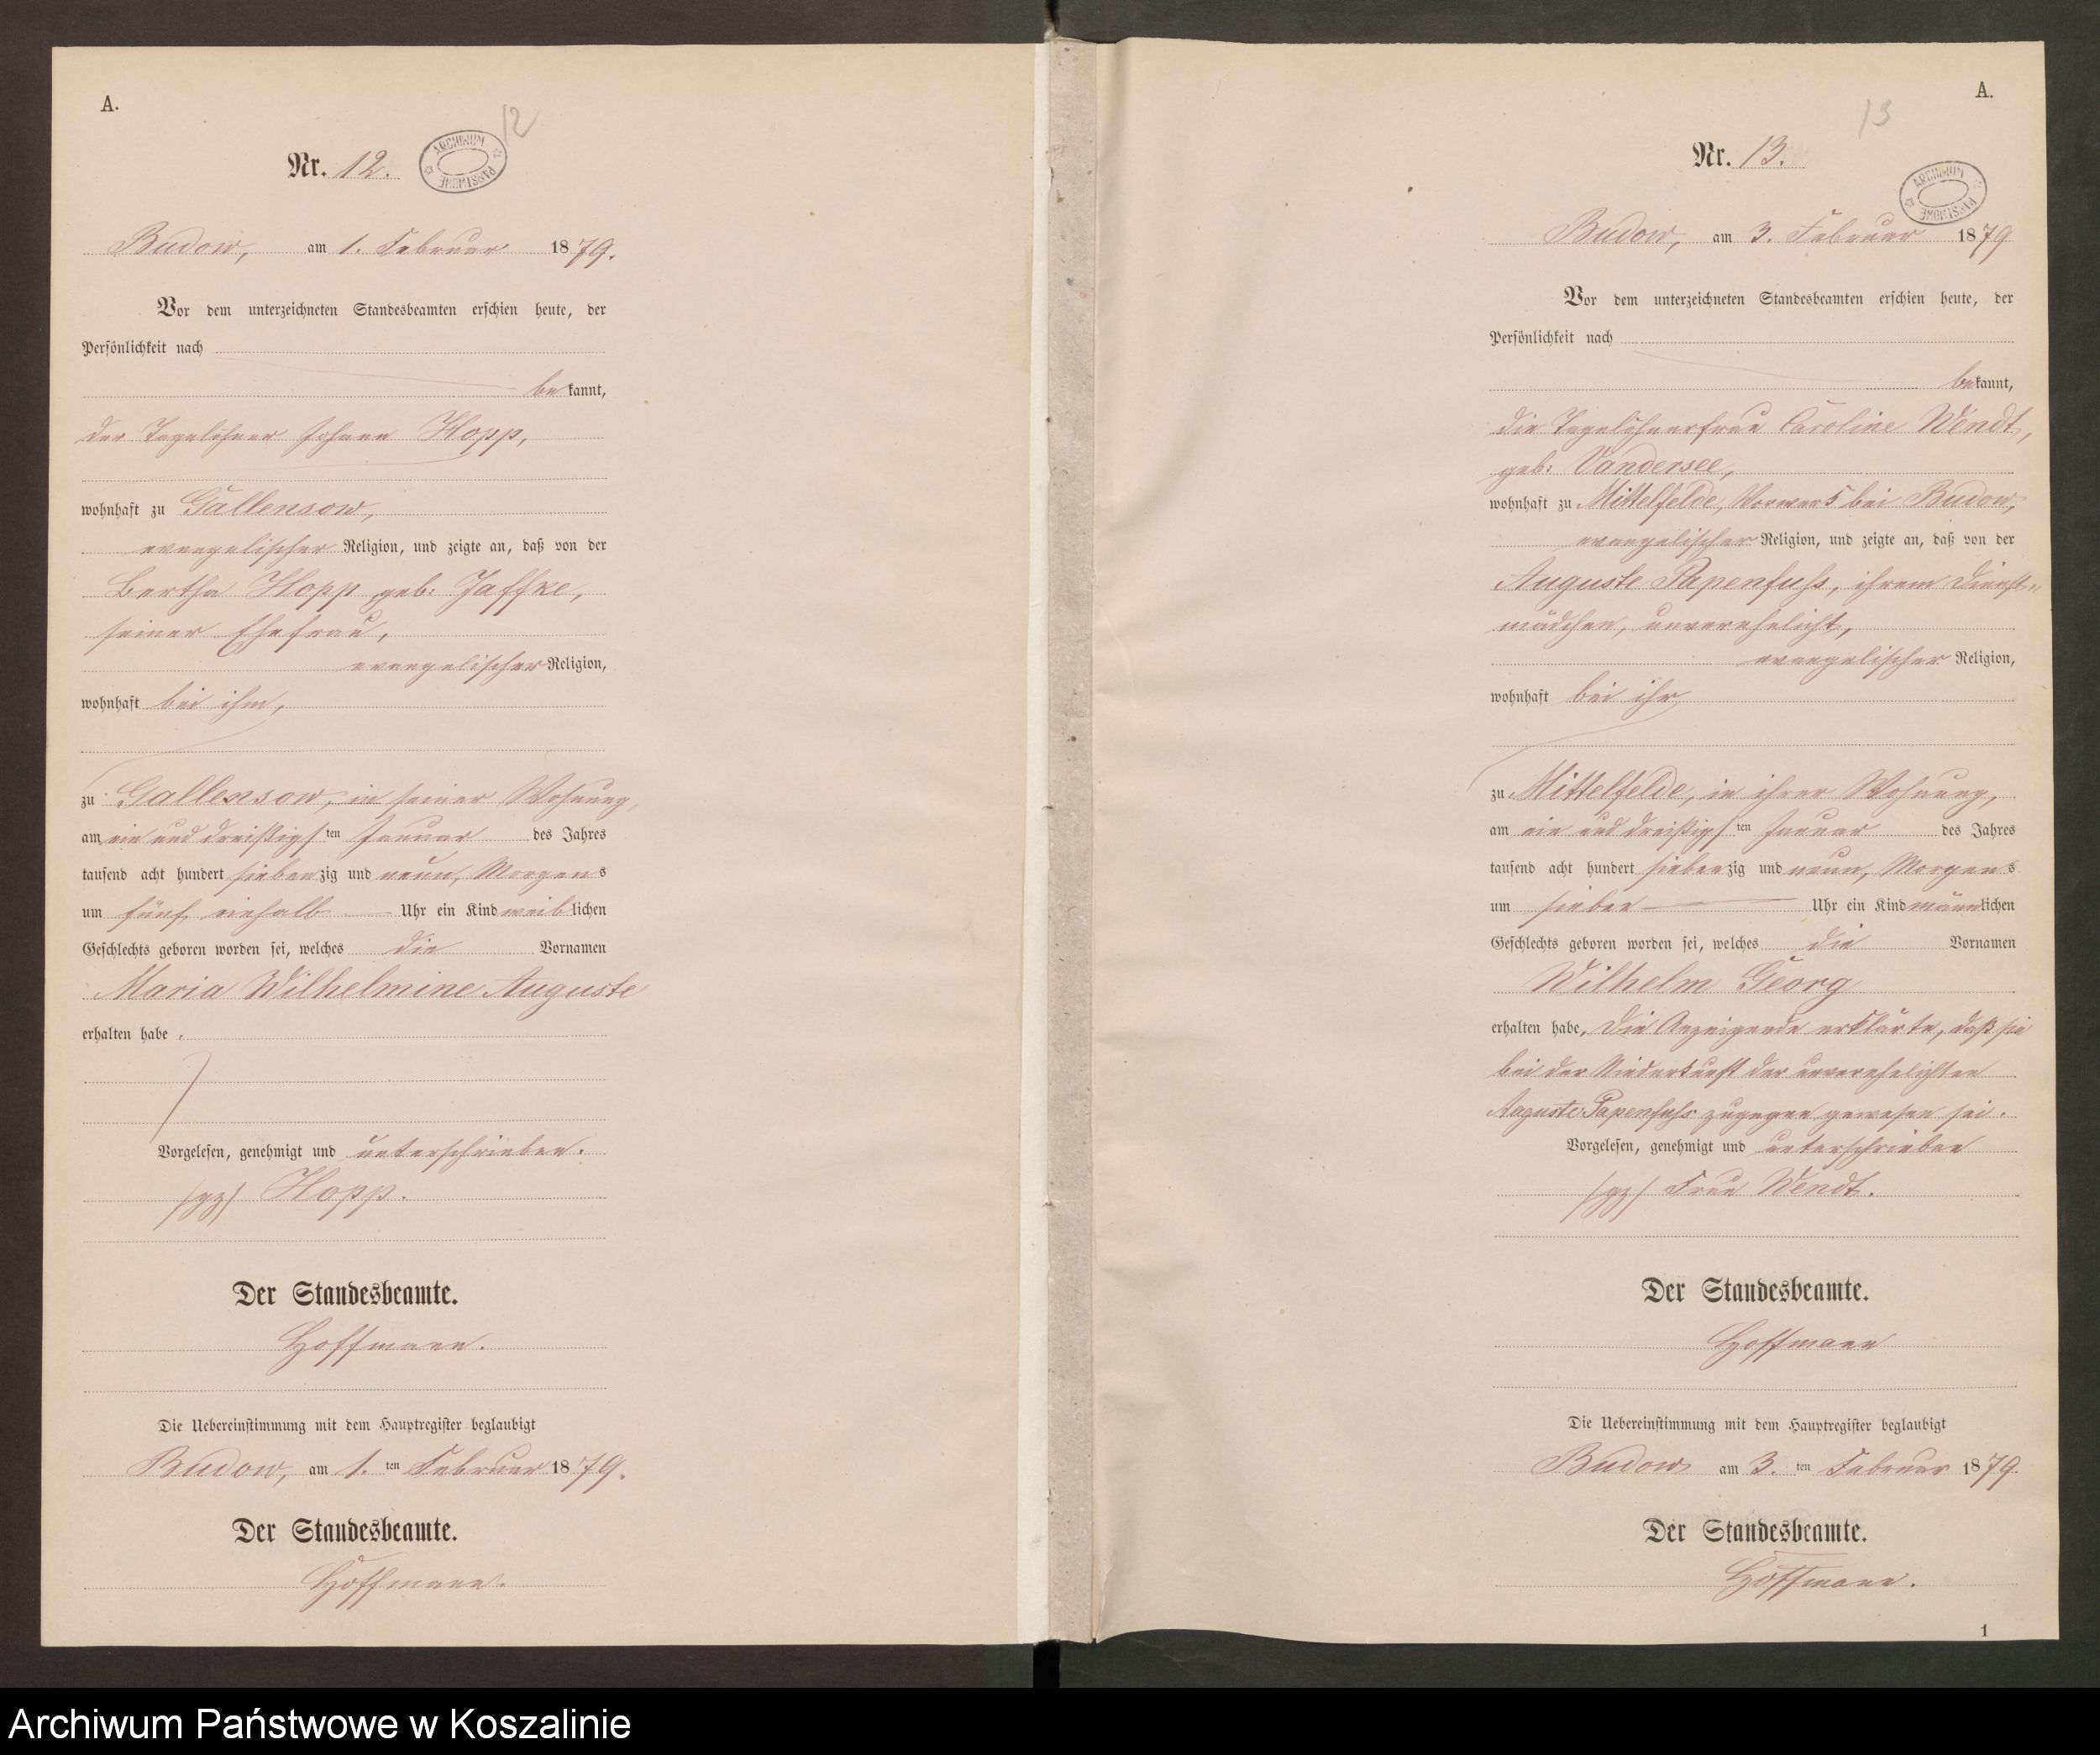 A.
12
Nr. 12.
ARCHIWUM PAŃSTWOWE
Budow, am 1. Februar 1879.
Vor dem unterzeichneten Standesbeamten erschien heute, der
Persönlichkeit nach
bekannt,
der Tagelöhner Johann Hopp,
wohnhaft zu Gallensow,
evangelischer Religion, und zeigte an, daß von der
Bertha Hopp geb: Jaffke,
seiner Ehefrau,
evangelischer Religion,
wohnhaft bei ihm,
zu Gallensow, in seiner Wohnung,
am ein und dreißigsten Januar des Jahres
tausend acht hundert siebenzig und neun, Morgens
um fünf einhalb Uhr ein Kind weiblichen
Geschlechts geboren worden sei, welches die Vornamen
Maria Wilhelmine Auguste
erhalten habe.
Vorgelesen, genehmigt und unterschrieben.
/gz/ Hopp.
Der Standesbeamte.
Hoffmann.
Die Uebereinstimmung mit dem Hauptregister beglaubigt
Budow, am 1.ten Februar 1879.
Der Standesbeamte.
Hoffmann.
A.
13
Nr. 13.
ARCHIWUM PAŃSTWOWE
Budow, am 3. Februar 1879
Vor dem unterzeichneten Standesbeamten erschien heute, der
Persönlichkeit nach
bekannt,
die Tagelöhnerfrau Caroline Wendt,
geb: Vandersee,
wohnhaft zu Mittelfelde, Vorwerk bei Budow,
evangelischer Religion, und zeigte an, daß von der
Auguste Papenfuhs, ihrem Dienst-
mädchen, unverehelicht,
evangelischer Religion,
wohnhaft bei ihr
zu Mittelfelde, in ihrer Wohnung,
am ein und dreißigsten Januar des Jahres
tausend acht hundert siebenzig und neun, Morgens
um sieben Uhr ein Kind männlichen
Geschlechts geboren worden sei, welches die Vornamen
Wilhelm Georg
erhalten habe. Die Anzeigende erklärte, daß sie
bei der Niederkunft der unverehelichten
Auguste Papenfuhs zugegen gewesen sei.
Vorgelesen, genehmigt und unterschrieben
/gz/ Frau Wendt.
Der Standesbeamte.
Hoffmann
Die Uebereinstimmung mit dem Hauptregister beglaubigt
Budow am 3.ten Februar 1879.
Der Standesbeamte.
Hoffmann.
1
Archiwum Państwowe w Koszalinie